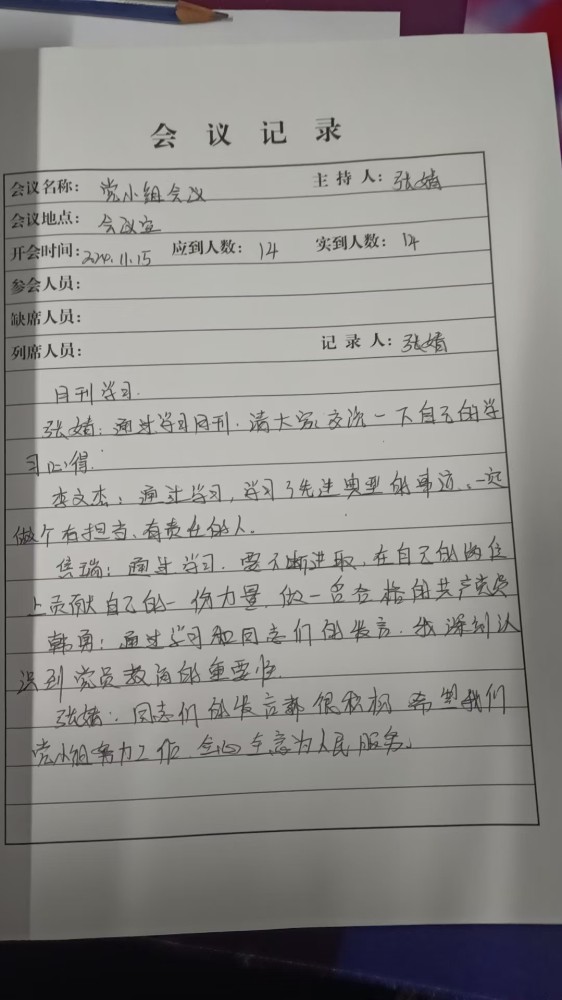 会议记录
会议名称： 党小组会议 主持人：张婧
会议地点： 会议室
开会时间：2020.11.15 应到人数：14 实到人数：14
参会人员：
缺席人员：
列席人员： 记录人：张婧
月刊学习.
张婧：通过学习月刊.请大家交流一下自己的学
习心得.
李文杰：通过学习，学习了先进典型的事迹、一定
做个有担当、有责任的人.
焦瑞：通过学习.要不断进取，在自己的岗位
上贡献自己的一份力量.做一名合格的共产党员
韩勇：通过学习和同志们的发言.我深刻认
识到党员教育的重要性.
张婧：同志们的发言都很积极 希望我们
党小组努力工作.全心全意为人民服务。